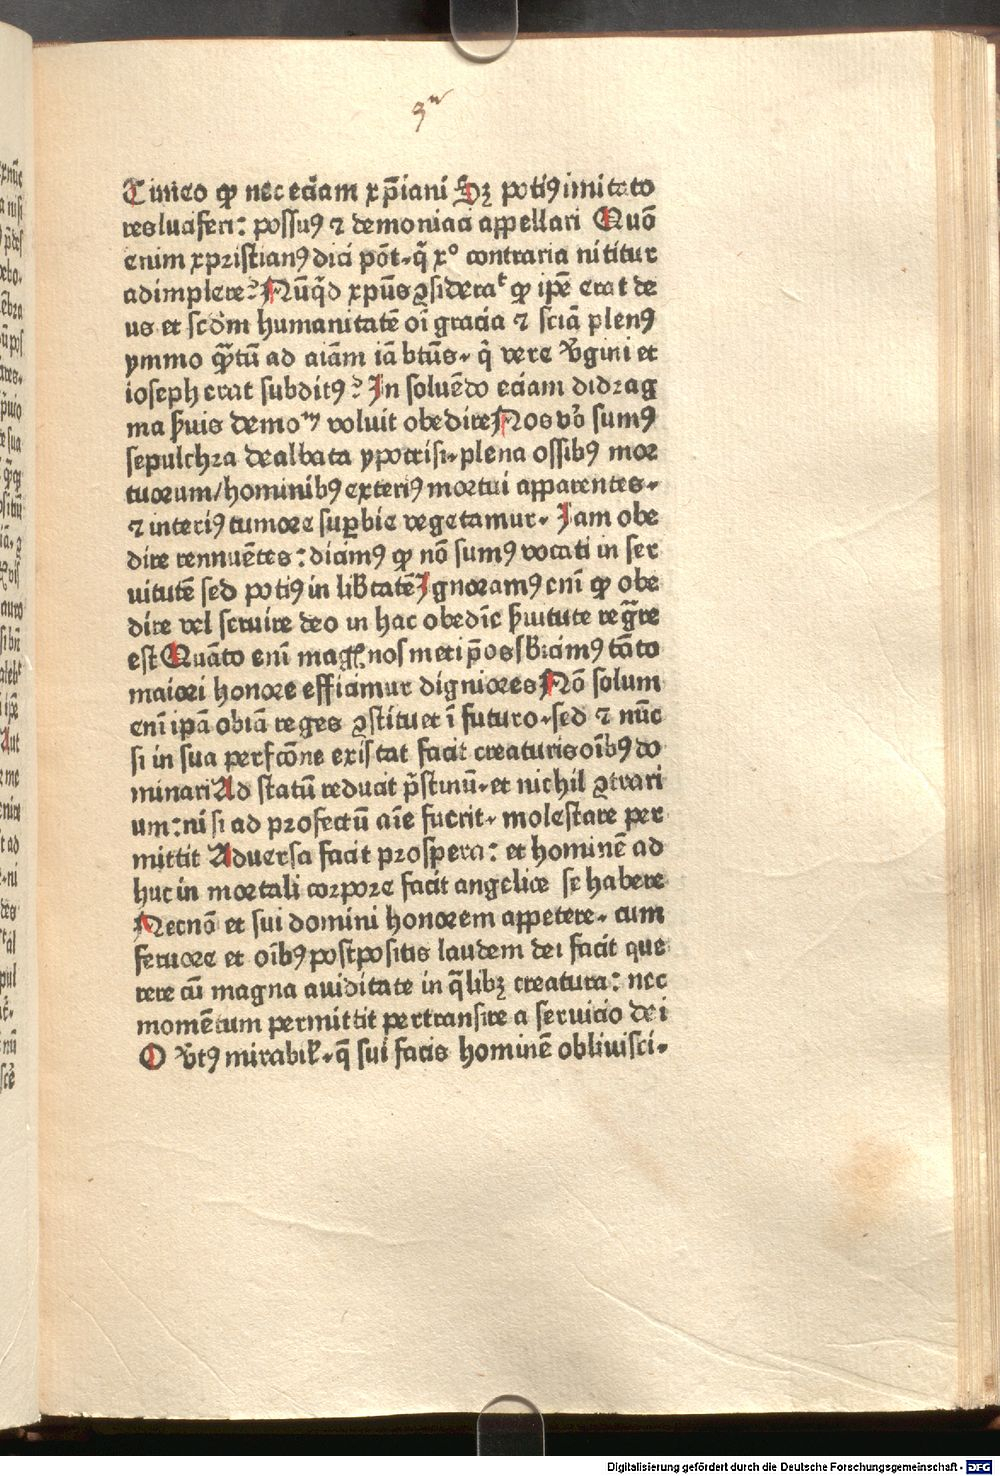 3ᵃ
Timeo ꝙ nec eciam xp̄iani Sꝫ potiꝰ imitato
res luciferi: possuꝰ ⁊ demoniaci appellari Quō
enim xpristianꝰ dici pōt. q̄ xº contraria nititur
adimplere? Nūq̄d xpūs ꝯsiderat ꝙ ip̄e erat de
us et scd̄m humanitatē oī gracia ⁊ sciā plenꝰ
ymmo qᷓtū ad aīam iā btūs. q̄ vere v̓gini et
ioseph erat subditꝰ? In soluēdo eciam didrag
ma ẜuis demoⁿꝝ voluit obedire Nos v̓o sumꝰ
sepulchra dealbata ypocrisi. plena ossibꝰ mor
tuorum/hominibꝰ exteriꝰ mortui apparentes.
⁊ interiꝰ tumore suꝑbie vegetamur. Jam obe
dire rennuētes: dicimꝰ ꝙ nō sumꝰ vocati in ser
uitutē sed potiꝰ in lib̓tatē Ignoramꝰ enī ꝙ obe
dire vel seruire deo in hac obedīe ẜuitute regᷓre
est Quāto enī magꝭ nosmetip̄os sb̓icimꝰ tāto
maiori honore efficimur digniores Nō solum
enī ip̄a obīa reges ꝯstituet ī futuro. sed ⁊ nūc
si in sua perfcōne existat facit creaturis oībꝰ do
minari Ad statū reducit p̄stinū. et nichil ꝯtrari
um: nisi ad profectū aīe fuerit. molestare per
mittit Aduersa facit prospera: et hominē ad
huc in mortali corpore facit angelice se habere
Necnō et sui domini honorem appetere. cum
feruore et oībꝰ postpositis laudem dei facit que
rere cū magna auiditate in q̄libꝫ creatura: nec
momētum permittit pertransire a seruicio dei
O v̓tꝰ mirabiłꝭ. q̄ sui facis hominē obliuisci.
Digitalisierung gefördert durch die Deutsche Forschungsgemeinschaft - DFG